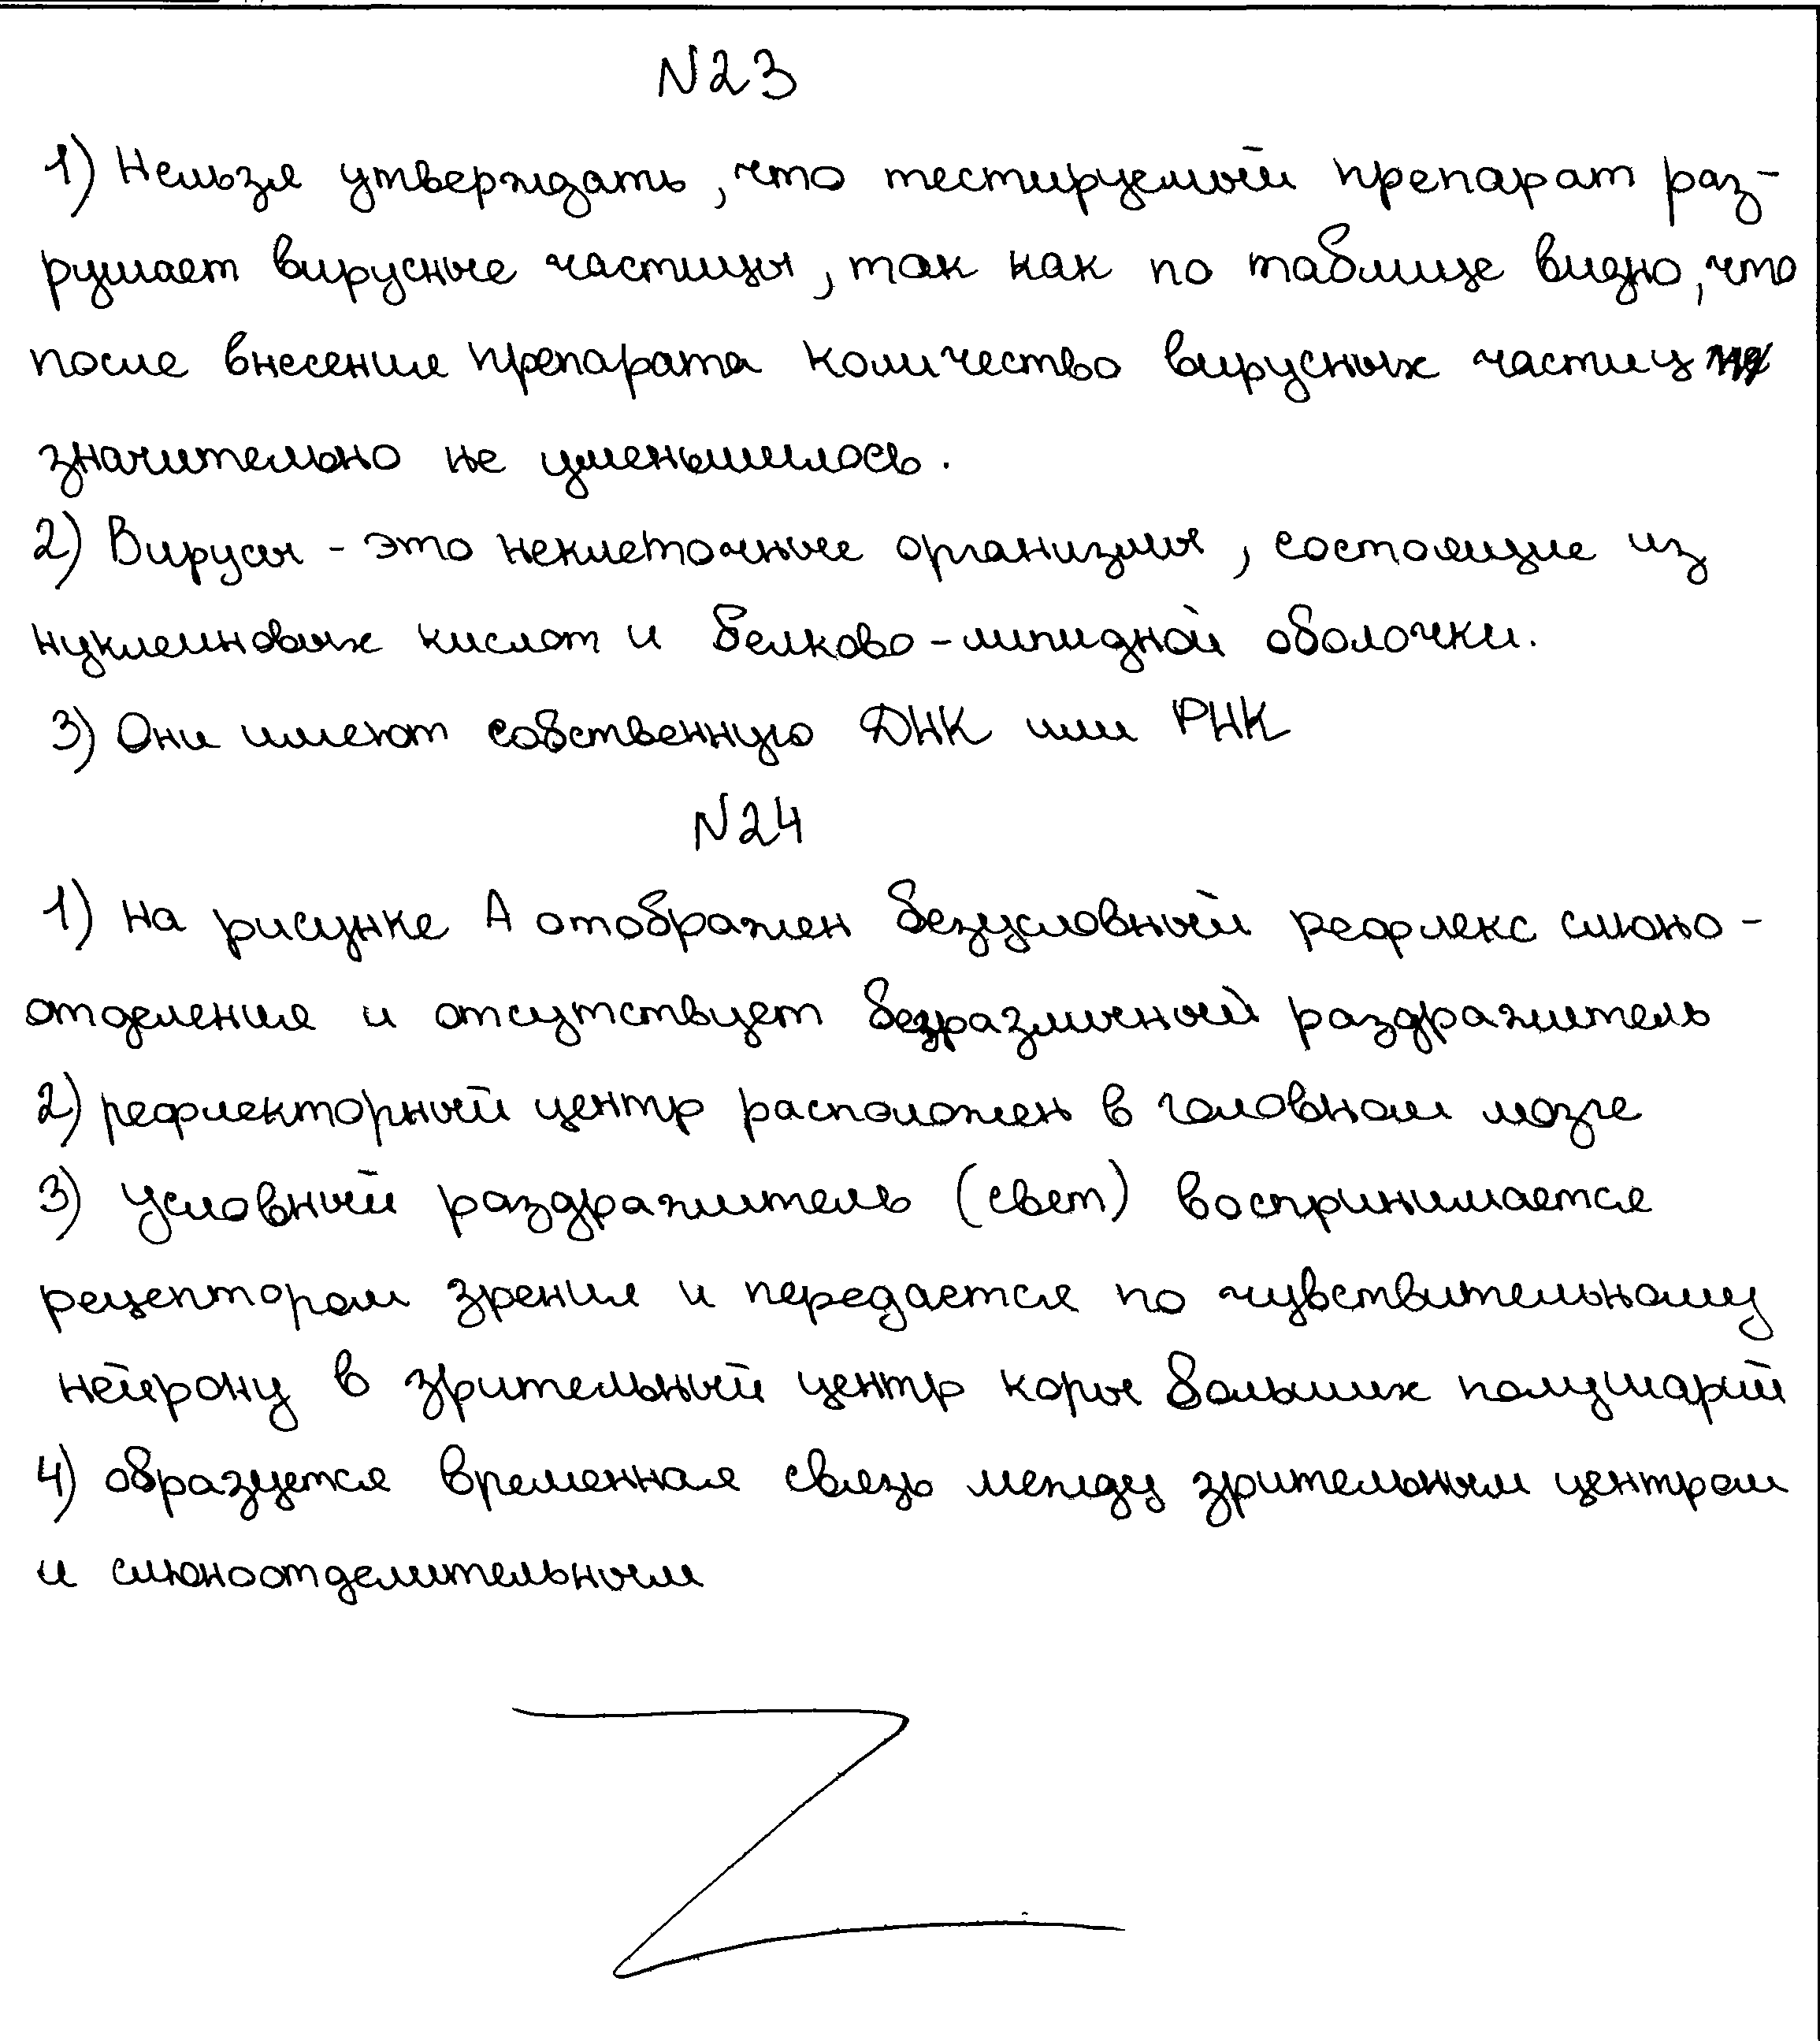 N23
1) Нельзя утверждать, что тестируемый препарат раз-
рушает вирусные частицы, так как по таблице видно, что
после внесения препарата количество вирусных частиц
значительно не уменьшилось.
2) Вирусы - это неклеточные организмы, состоящие из
нуклеиновых кислот и белково-липидной оболочки.
3) Они имеют собственную ДНК или РНК
N24
1) на рисунке А отображен безусловный рефлекс слюно-
отделения и отсутствует безразличный раздражитель
2) рефлекторный центр расположен в головном мозге
3) Условный раздражитель (свет) воспринимается
рецептором зрения и передается по чувствительному
нейрону в зрительный центр коры больших полушарий
4) образуется временная связь между зрительным центром
и слюноотделительным